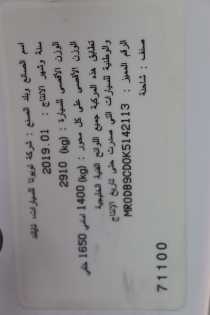 اسم الصانع وبلد الصنع : شركة تويوتا للسيارات، تايلاند
سنة وشهر الانتاج : 2019.01
الوزن الأقصى للسيارة (kg) : 2910
الوزن الأقصى على كل محور : (kg) 1400 أمامي 1650 خلفي
تطابق هذه المركبة جميع اللوائح الفنية الخليجية
والوطنية للسيارات التي صدرت حتى تاريخ الإنتاج
الرقم المميز : MR0D89CD0K5142113
صنف : شاحنة
71100